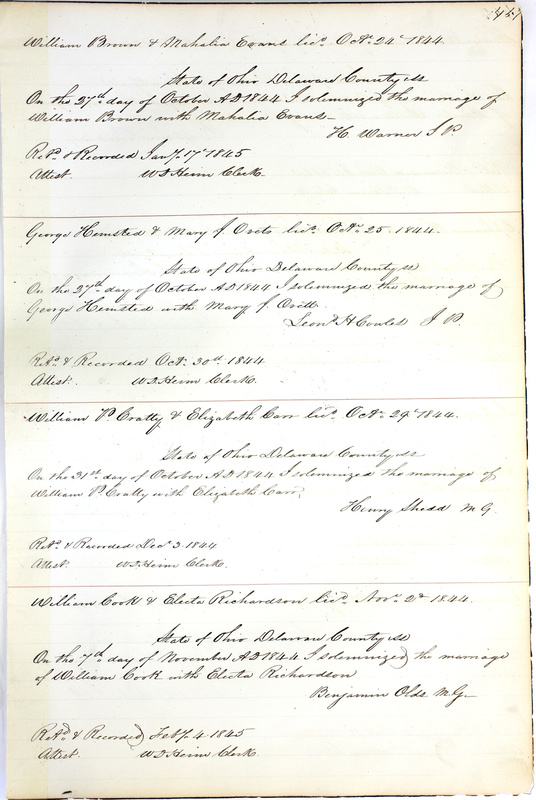 451
William Brown & Mahalia Evans lics. Octr. 24th 1844
State of Ohio Delaware County ss
On the 27th day of October AD 1844 I solemnized the marriage of
William Brown with Mahalia Evans
H. Warner J P.
Retd. & Recorded Jany. 17th 1845
Attest. W D Heim Clerk
George Hemsted & Mary J. lics. Octr. 25. 1844.
State of Ohio Delaware County ss
On the 27th day of October AD 1844 I solemnized the marriage of
George Hemsted with Mary J.
Leond. H Cowles J P.
Retd. & Recorded Octr. 30th. 1844
Attest. W D Heim Clerk.
William P. Cratty & Elizabeth Carr lics. Octr. 29th 1844.
State of Ohio Delaware County ss
On the 31st. day of October AD 1844 I solemnized the marriage of
William P. Cratty with Elizabeth Carr.
Henry Shedd M. G.
Retd. & Recorded Decr. 3. 1844
Attest. W D Heim Clerk.
William Cook & Electa Richardson lics. Novr. 2d 1844.
State of Ohio Delaware County ss
On the 7th day of November AD 1844 I solemnized the marriage
of William Cook with Electa Richardson
Benjamin Olds M. G.
Retd. & Recorded Feby. 4. 1845
Attest. W D Heim Clerk